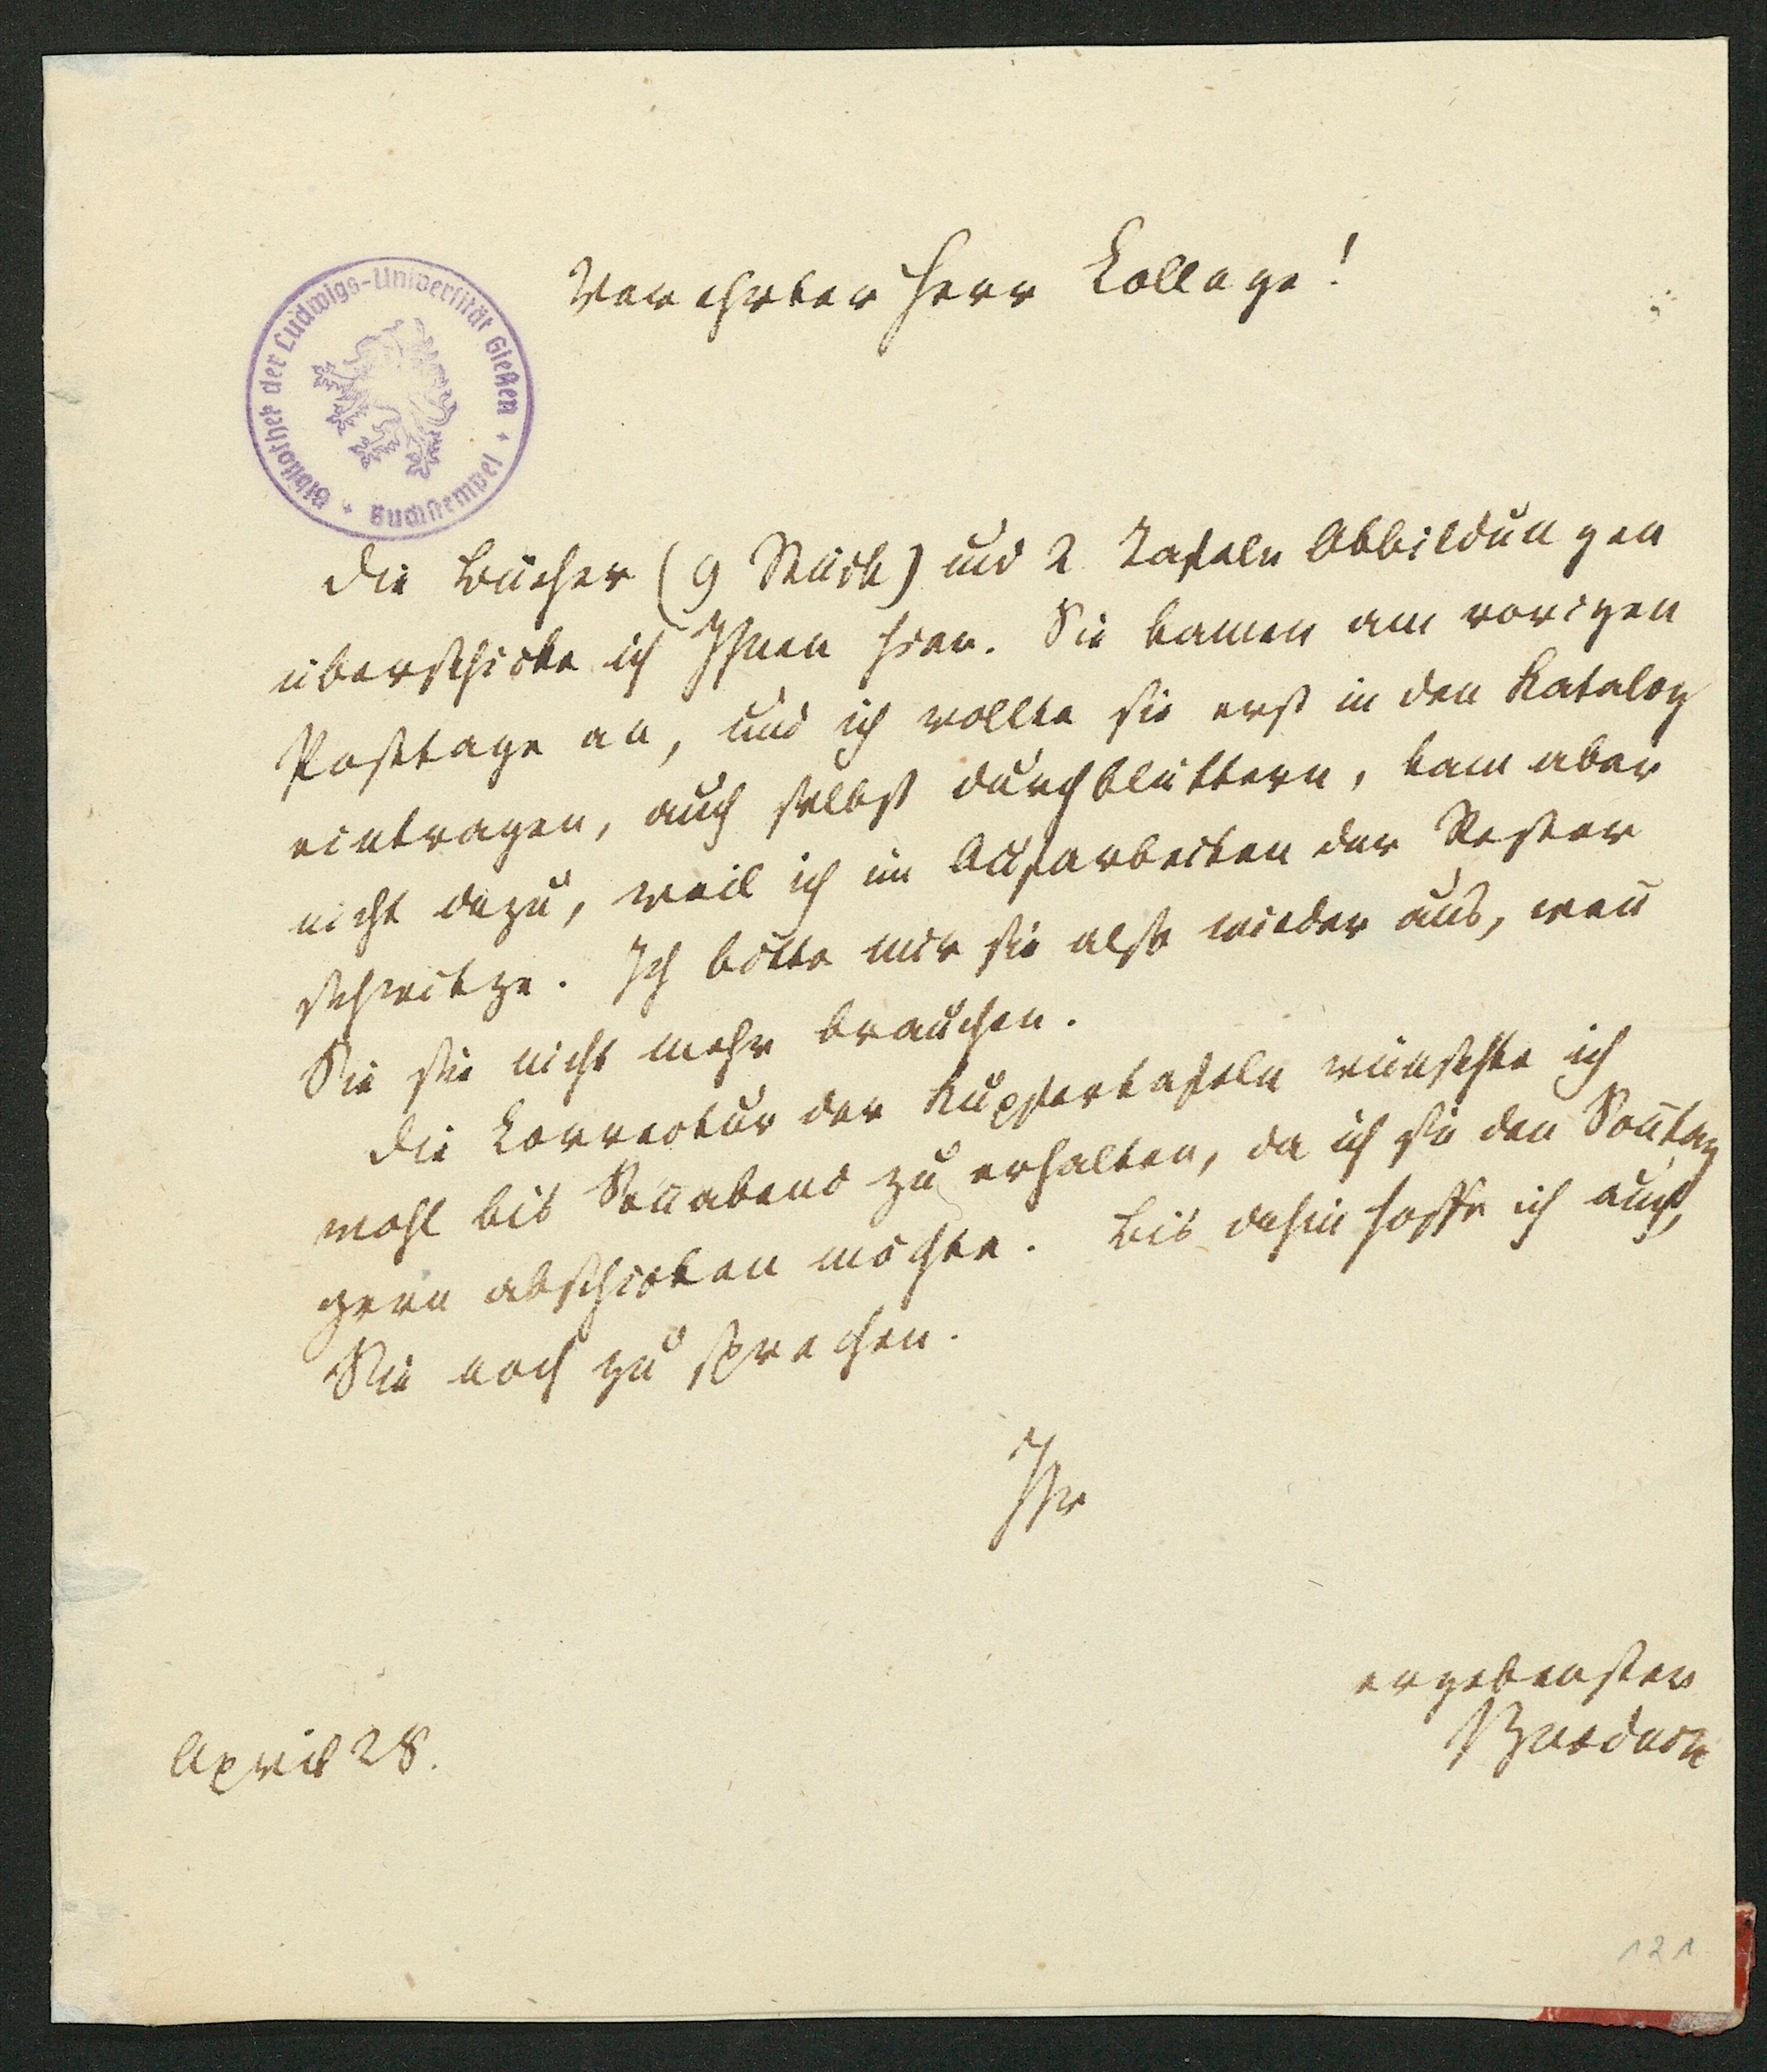 Verehrter Herr College!
Bibliothek der Ludwigs-Universität Gießen
Buchstempel
Die Bücher (9 Stück) und 2 Tafeln Abbildungen
überschicke ich Ihnen hier. Sie kamen am vorigen
Posttage an, und ich wollte sie erst in den Katalog
eintragen, auch selbst durchblättern, kam aber
nicht dazu, weil ich im Aufarbeiten der Rester
schwitze. Ich bitte mir sie also wieder aus, wen̄
Sie sie nicht mehr brauchen.
Die Correctur der Kupfertafeln wünschte ich
wohl bis Son̄abend zu erhalten, da ich sie den Son̄tag
gern abschicken möchte. Bis dahin hoffe ich auch,
Sie noch zu sprechen.
Ihr
ergebenster
April 28.
121